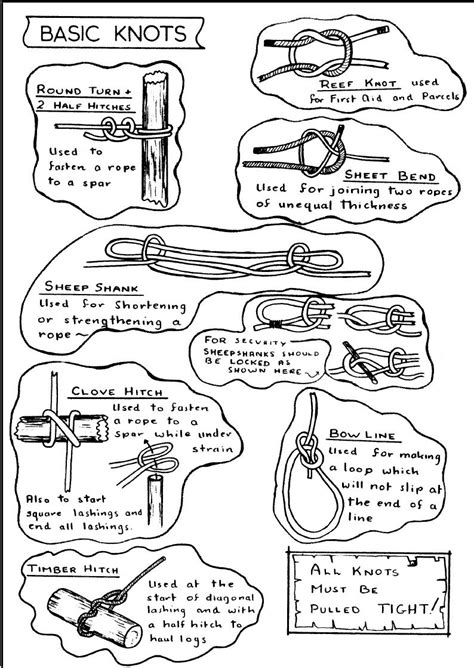 BASIC KNOTS
ROUND TURN +
2 HALF HITCHES
Used to
fasten a rope
to a spar
REEF KNOT used
for First Aid and Parcels
SHEET BEND
Used for joining two ropes
of unequal thickness
SHEEP SHANK
Used for Shortening
or strengthening a
rope ~
FOR SECURITY
SHEEPSHANKS SHOULD
BE LOCKED AS
SHOWN HERE ~
CLOVE HITCH
Used to fasten
a rope to a
spar while under
strain
Also to start
square lashings and
end all lashings.
BOW LINE
Used for making
a loop which
will not slip at
the end of a
line
TIMBER HITCH
Used at the
start of diagonal
lashing and with
a half hitch to
haul logs
ALL KNOTS
MUST BE
PULLED TIGHT!